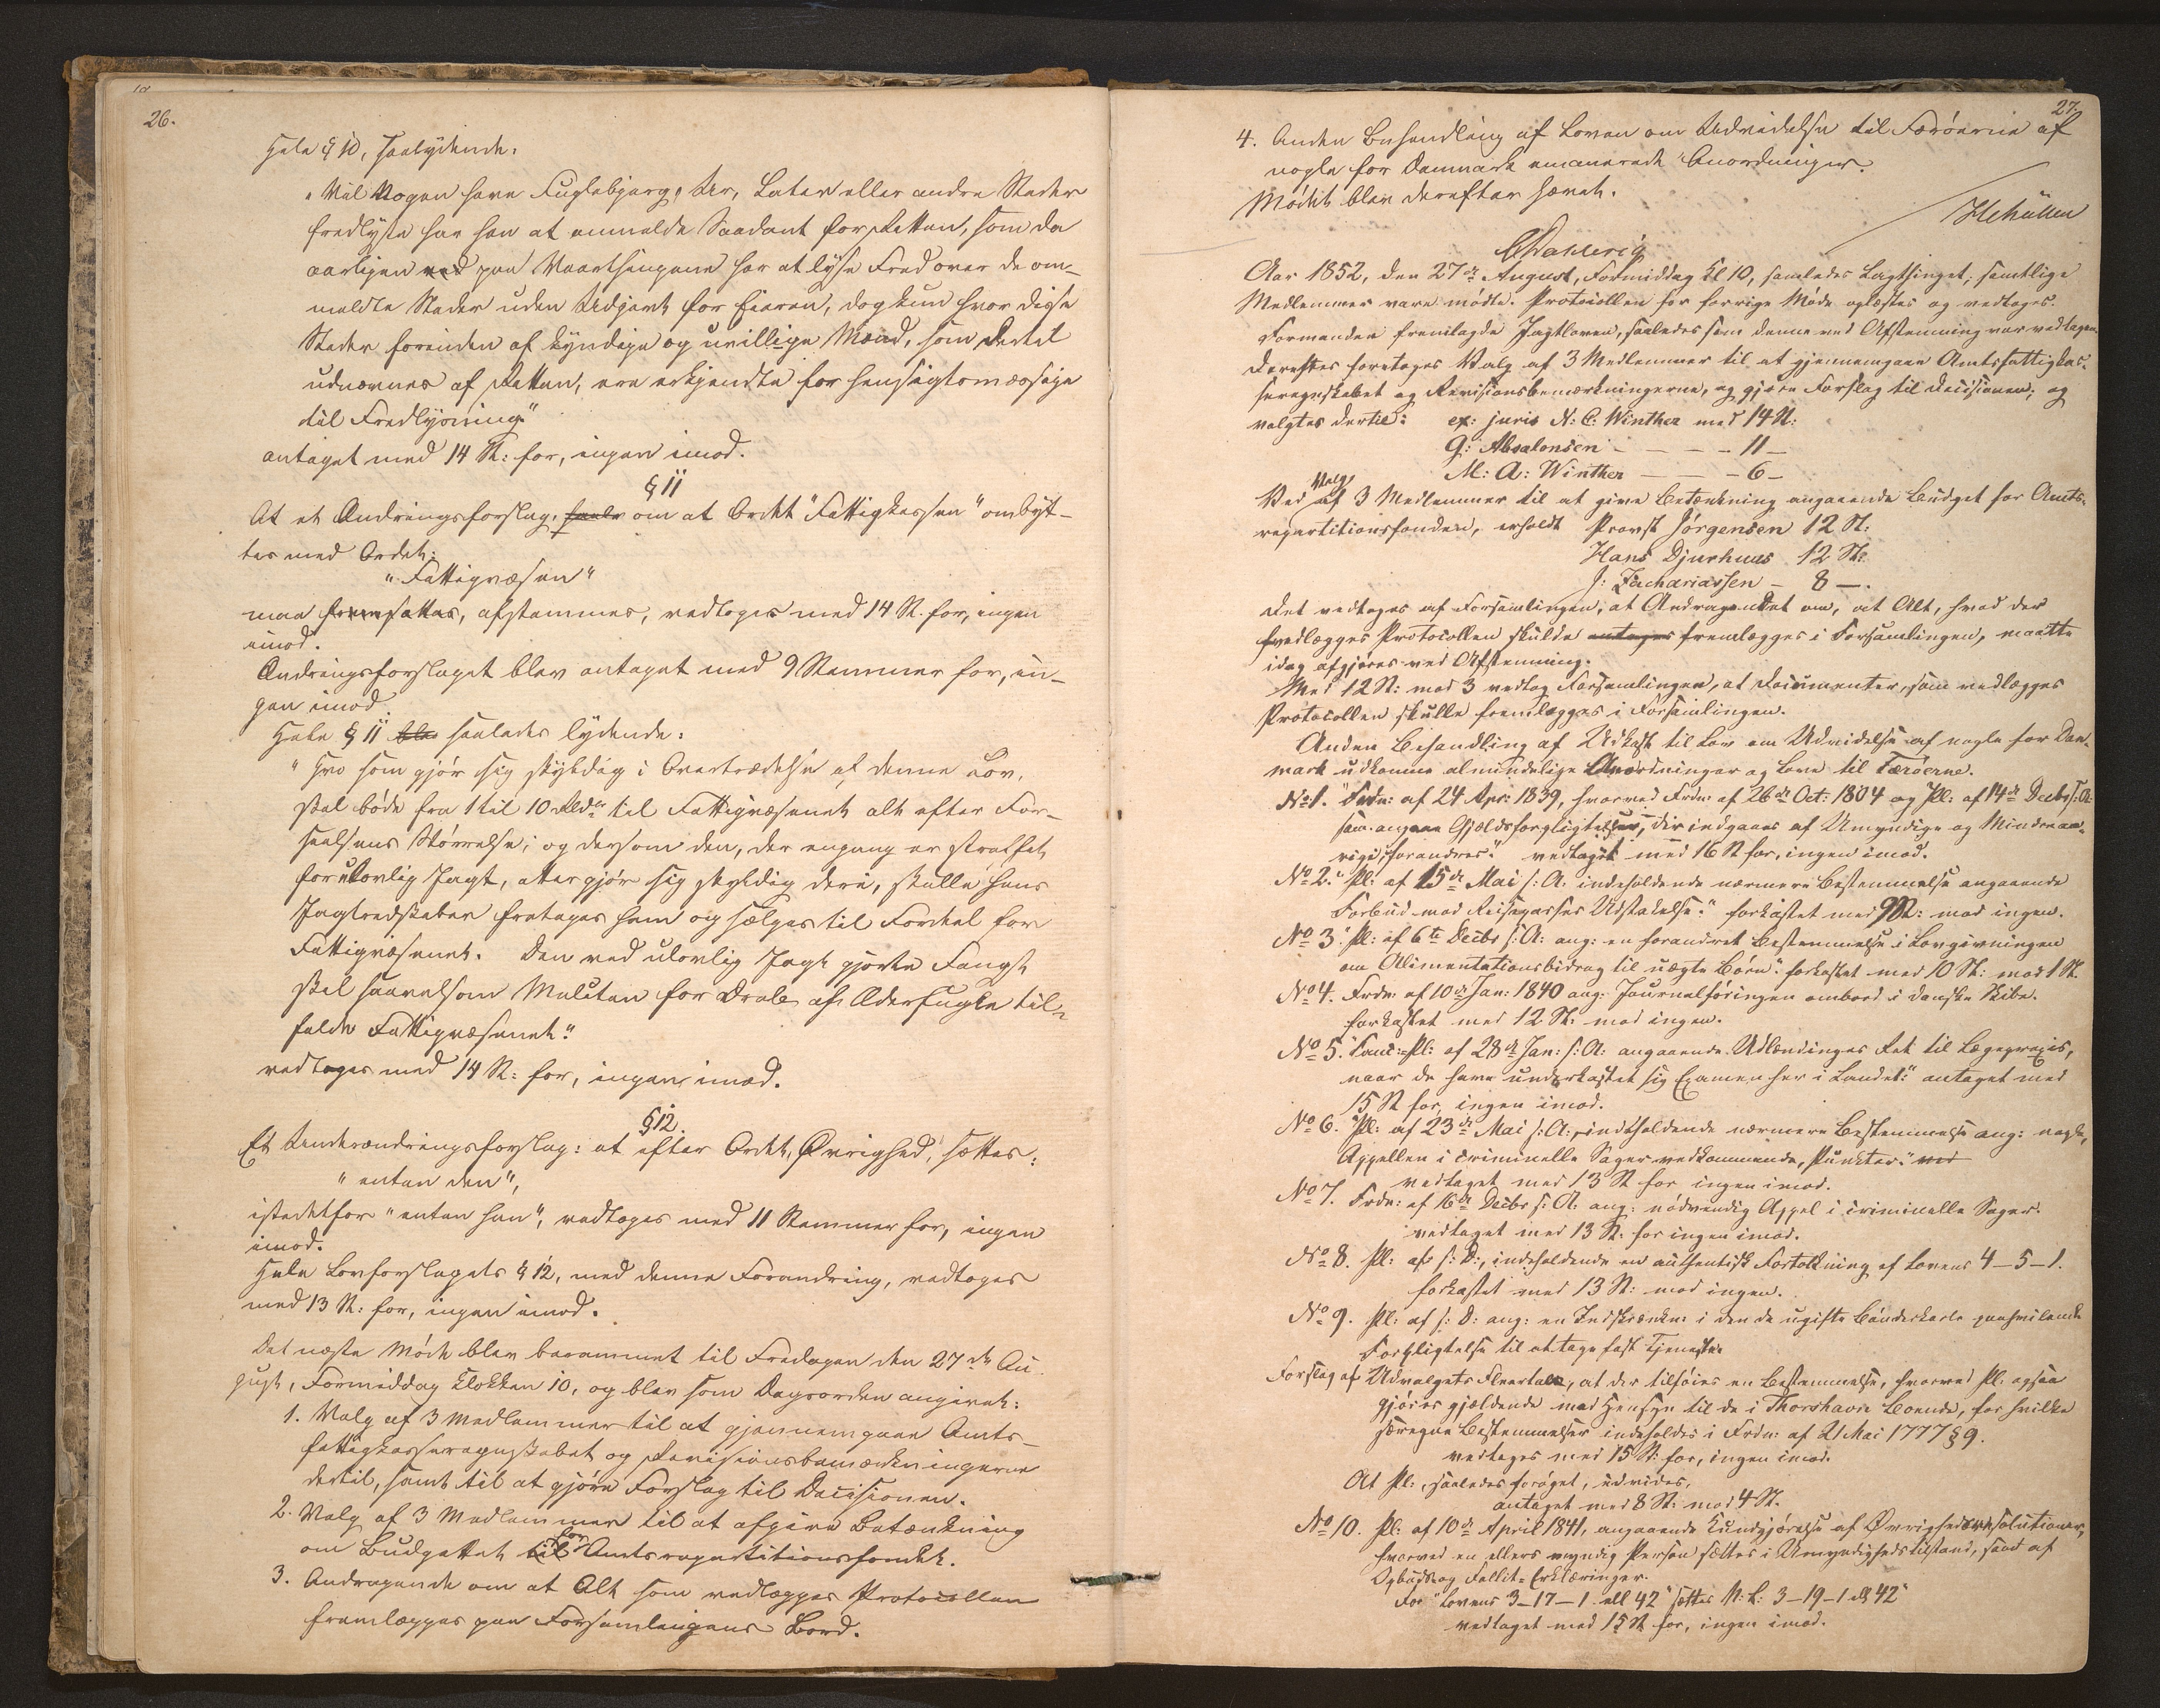 26.
Hele § 10, saalydende:
"Vil Nogen have Fuglebjerg, Ur, Later eller andre Steder
fredlyste har han at anmelde Saadant for Retten, som da
aarligen ved paa Vaarthingene har at lyse Fred over de om-
meldte Steder uden Udgivt for Eieren, dog kun hvor disse
Steder forinden af kyndige og uvillige Mænd, som dertil
udnævnes af Retten, ere erkjendte for hensigtsmæssige
til Fredlysning"
antaget med 14 St: for, ingen imod.
§ 11
At et Ændringsforslag, om at Ordet "Fattigkassen" ombyt-
tes med Ordet:
"Fattigvæsen"
maa fremsættes, afstemmes, vedtoges med 14 St. for, ingen
imod.
Ændringsforslaget blev antaget med 9 Stemmer for, in-
gen imod.
Hele § 11 blev saaledes lydende:
"Hvo som gjør sig skyldig i Overtrædelse af denne Lov,
skal bøde fra 1 til 10 Rbdr til Fattigvæsenet alt efter For-
seelsens Størrelse; og dersom den, der engang er straffet
for ulovlig Jagt, atter gjør sig skyldig deri, skulle hans
Jagtredskaber fratages ham og sælges til Fordel for
Fattigvæsenet. Den ved ulovlig Jagt gjorte Fangst
skal saavelsom Mulcten for Drab af Ederfugle til-
falde Fattigvæsenet."
vedtoges med 14 St: for, ingen imod.
§ 12.
Et Underændringsforslag: at efter Ordet, Øvrighed, sættes:
"enten den",
istedetfor "enten han", vedtoges med 11 Stemmer for, ingen
imod.
Hele Lovforslagets § 12, med denne Forandring, vedtoges
med 13 St: for, ingen imod.
Det næste Møde blev berammet til Fredagen den 27de Au-
gust, Formiddag Klokken 10, og blev som Dagsorden angivet:
1. Valg af 3 Medlemmer til at gjennemgaae Amts-
fattigkasseregnskabet og Revisionsbemærkningerne
dertil, samt til at gjøre Forslag til Decisionen.
2. Valg af 3 Medlemmer til at afgive Betænkning
om Budgettet til for Amtsrepartitionsfondet.
3. Andragende om at Alt som vedlægges Protocollen
fremlægges paa Forsamlingens Bord.
27.
4. Anden Behandling af Loven om Udvidelse til Færøerne af
nogle for Danmark emanerede Anordninger.
Mødet blev derefter hævet.
Dahlerup
Aar 1852, den 27de August, Formiddag Kl 10, samledes Lagthinget; samtlige
Medlemmer vare mødte. Protocollen for forrige Møde oplæstes og vedtoges.
Formanden fremlagde Jagtloven, saaledes som denne ved Afstemning var vedtagen.
Derefter foretoges Valg af 3 Medlemmer til at gjennemgaae Amtsfattigkas-
seregnskabet og Revisionsbemærkningerne, og gjøre Forslag til Decisionen; og
valgtes dertil: ex: juris N: C: Winther med 14 St:
G: Absalonsen - - - - 11 -
M: A: Winther - - - 6 -
Ved Valg af 3 Medlemmer til at give Betænkning angaaende Budget for Amts-
repartitionsfonden, erholdt Provst Jørgensen 12 St:
Hans Djurhuus 12 St:
J: Zachariassen - 8 -.
Det vedtoges af Forsamlingen, at Andragendet om, at Alt, hvad der
vedlægges Protocollen skulde antages fremlægges i Forsamlingen, maatte
idag afgjøres ved Afstemning.
Med 12 St: mod 3 vedtog Forsamlingen, at Documenter, som vedlægges
Protocollen skulle fremlægges i Forsamlingen.
Anden Behandling af Udkast til Lov om Udvidelse af nogle for Dan-
mark udkomne almindelige Anordninger og Love til Færøerne.
No 1. "Frdn: af 24 Apr: 1839, hvorved Frdn: af 26de Oct: 1804 og Pl: af 14de Decbr s: A:
som angaae Gjældsforpligtelser, der indgaaes af Umyndige og Mindreaa-
rige, forandres." vedtaget med 16 St for, ingen imod.
No 2. "Pl: af 15de Mai s: A: indeholdende nærmere Bestemmelse angaaende
Forbud mod Reisepasses Udstedelse." forkastet med 9 St: mod ingen.
No 3. "Pl: af 6te Decbr s: A: ang: en forandret Bestemmelse i Lovgivningen
om Alimentationsbidrag til uægte Børn." forkastet med 10 St: mod 1 St.
No 4. Frdn: af 10de Jan: 1840 ang: Journalføringen ombord i danske Skibe.
forkastet med 12 St: mod ingen.
No 5. "Canc:-Pl: af 28de Jan: s: A: angaaende Udlændinges Ret til Lægepraxis,
naar de have underkastet sig Examen her i Landet." antaget med
15 St for, ingen imod.
No 6. "Pl: af 23de Mai s: A: indeholdende nærmere Bestemmelse ang: nogle,
Appellen i criminelle Sager vedkommende, Puncter." ved
vedtaget med 13 St for ingen imod.
No 7. Frdn: af 16de Decbr s: A: ang: nødvendig Appel i criminelle Sager.
vedtaget med 13 St: for ingen imod.
No 8. Pl: af s: D:, indeholdende en authentisk Fortolkning af Lovens 4-5-1.
forkastet med 13 St: mod ingen.
No 9. Pl: af s: D: ang: en Indskrænkn: i den de ugifte Bønderkarle paahvilende
Forpligtelse til at tage fast Tjeneste.
Forslag af Udvalgets Fleertal, at der tilføies en Bestemmelse, hvorved Pl: ogsaa
gjøres gjældende med Hensyn til de i Thorshavn Boende, for hvilke
særegne Bestemmelser indeholdes i Frdn: af 21 Mai 1777 § 9.
vedtoges med 15 St: for, ingen imod.
At Pl:, saaledes forøget, udvides,
antaget med 8 St: mod 4 St.
No 10. Pl: af 10de April 1841, angaaende Kundgjørelse af Øvrighedsresolutioner,
hvorved en ellers myndig Person sættes i Umyndighedstilstand, samt af
Opbuds og Fallit-Erklæringer.
For "Lovens 3-17-1 ell 42" sættes N: L: 3-19-1 ell 42"
vedtaget med 15 St for, ingen imod.